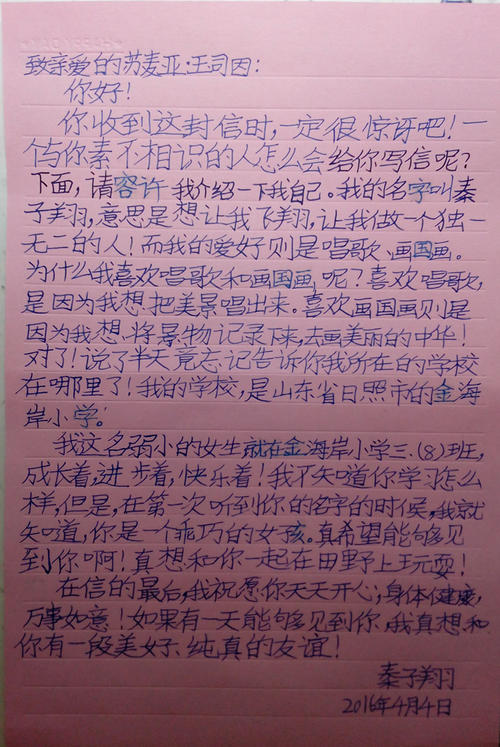 致亲爱的苏麦亚·王司因：
你好！
你收到这封信时，一定很惊讶吧！一
个与你素不相识的人怎么会给你写信呢？
下面，请容许我介绍一下我自己。我的名字叫秦
子翔羽，意思是想让我飞翔，让我做一个独一
无二的人！而我的爱好则是唱歌、画国画。
为什么我喜欢唱歌和画国画，呢？喜欢唱歌，
是因为我想把美景唱出来。喜欢画国画则是
因为我想将景物记录下来，去画美丽的中华！
对了！说了半天竟忘记告诉你我所在的学校
在哪里了！我的学校，是山东省日照市的金海
岸小学。
我这名弱小的女生就在金海岸小学三.(8)班，
成长着，进步着，快乐着！我不知道你学习怎么
样，但是，在第一次听到你的名字的时候，我就
知道，你是一个乖巧的女孩。真希望能够见
到你啊！真想和你一起在田野上玩耍！
在信的最后，我祝愿你天天开心；身体健康，
万事如意！如果有一天能够见到你，我真想和
你有一段美好、纯真的友谊！
秦子翔羽
2016年4月4日